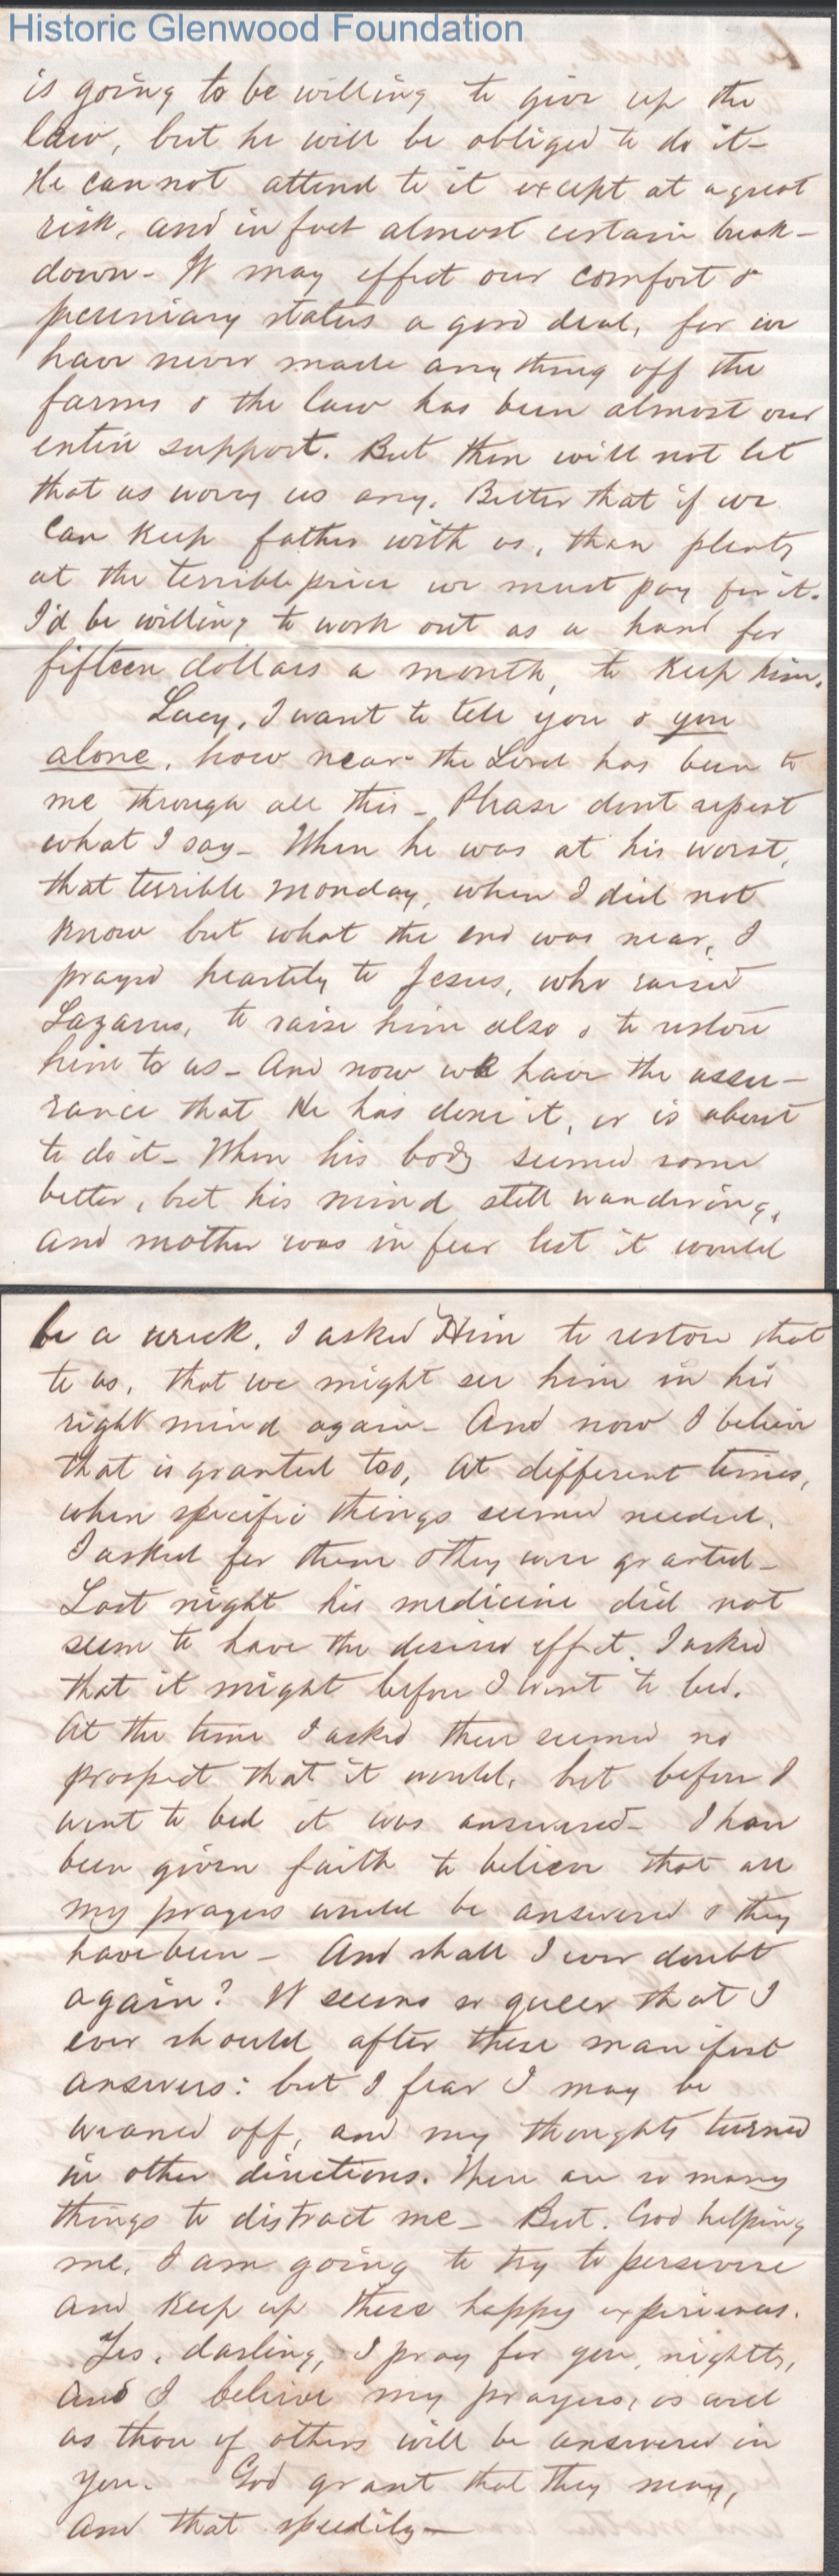 Historic Glenwood Foundation
is going to be willing to give up the
law, but he will be obliged to do it –
He cannot attend to it except at a great
risk, and in fact almost certain break –
down – It may effect our comfort &
pecuniary status a good deal, for we
have never made anything off the
farms & the law has been almost our
entire support. But then will not let
that us worry us any. Better that if we
can keep father with us, than plenty
at the terrible price we must pay for it.
I'd be willing to work out as a hand for
fifteen dollars a month, to keep him.
Lucy, I want to tell you & you
alone, how near the Lord has been to
me through all this – Please dont repeat
what I say – When he was at his worst,
that terrible Monday, when I did not
know but what the end was near, I
prayed heartily to Jesus, who raised
Lazarus, to raise him also & to restore
him to us – And now we have the assu –
rance that He has done it, or is about
to do it – When his body seemed some
better, but his mind still wandering,
and mother was in fear lest it would
be a wreck, I asked Him to restore that
to us, that we might see him in his
right mind again – And now I believe
that is granted too, At different times,
when specific things seemed needed,
I asked for them & they were granted –
Last night his medicine did not
seem to have the desired effect. I asked
that it might before I went to bed.
At the time I asked there seemed no
prospect that it would, but before I
went to bed it was answered – I have
been given faith to believe that all
my prayers would be answered & they
have been – And shall I ever doubt
again? It seems so queer that I
ever should after these manifest
answers: but I fear I may be
weaned off, and my thoughts turned
in other directions. There are so many
things to distract me – But. God helping
me, I am going to try to persevere
and keep up these happy experiences.
Yes, darling, I pray for you, nightly,
and I believe my prayers, as well
as those of others will be answered in
you. God grant that they may,
and that speedily –